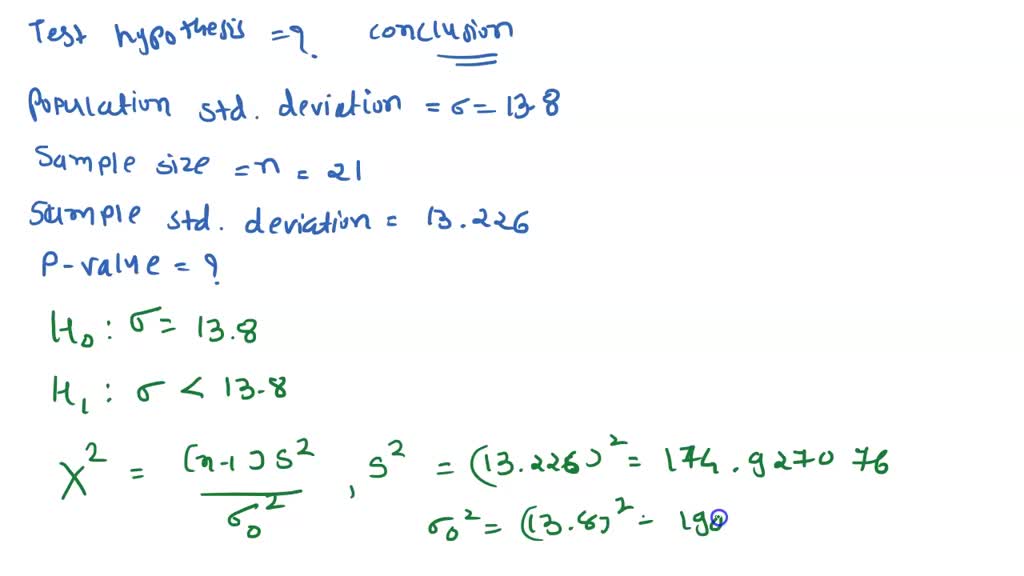 Test hypothesis = ? conclusion
Population std. deviation = σ = 13.8
Sample size = n = 21
Sample std. deviation = 13.226
P-value = ?
H₀ : σ = 13.8
H₁ : σ < 13.8
X² = (n-1)S² / σ₀² , S² = (13.226)² = 174.927076
σ₀² = (13.8)² = 190